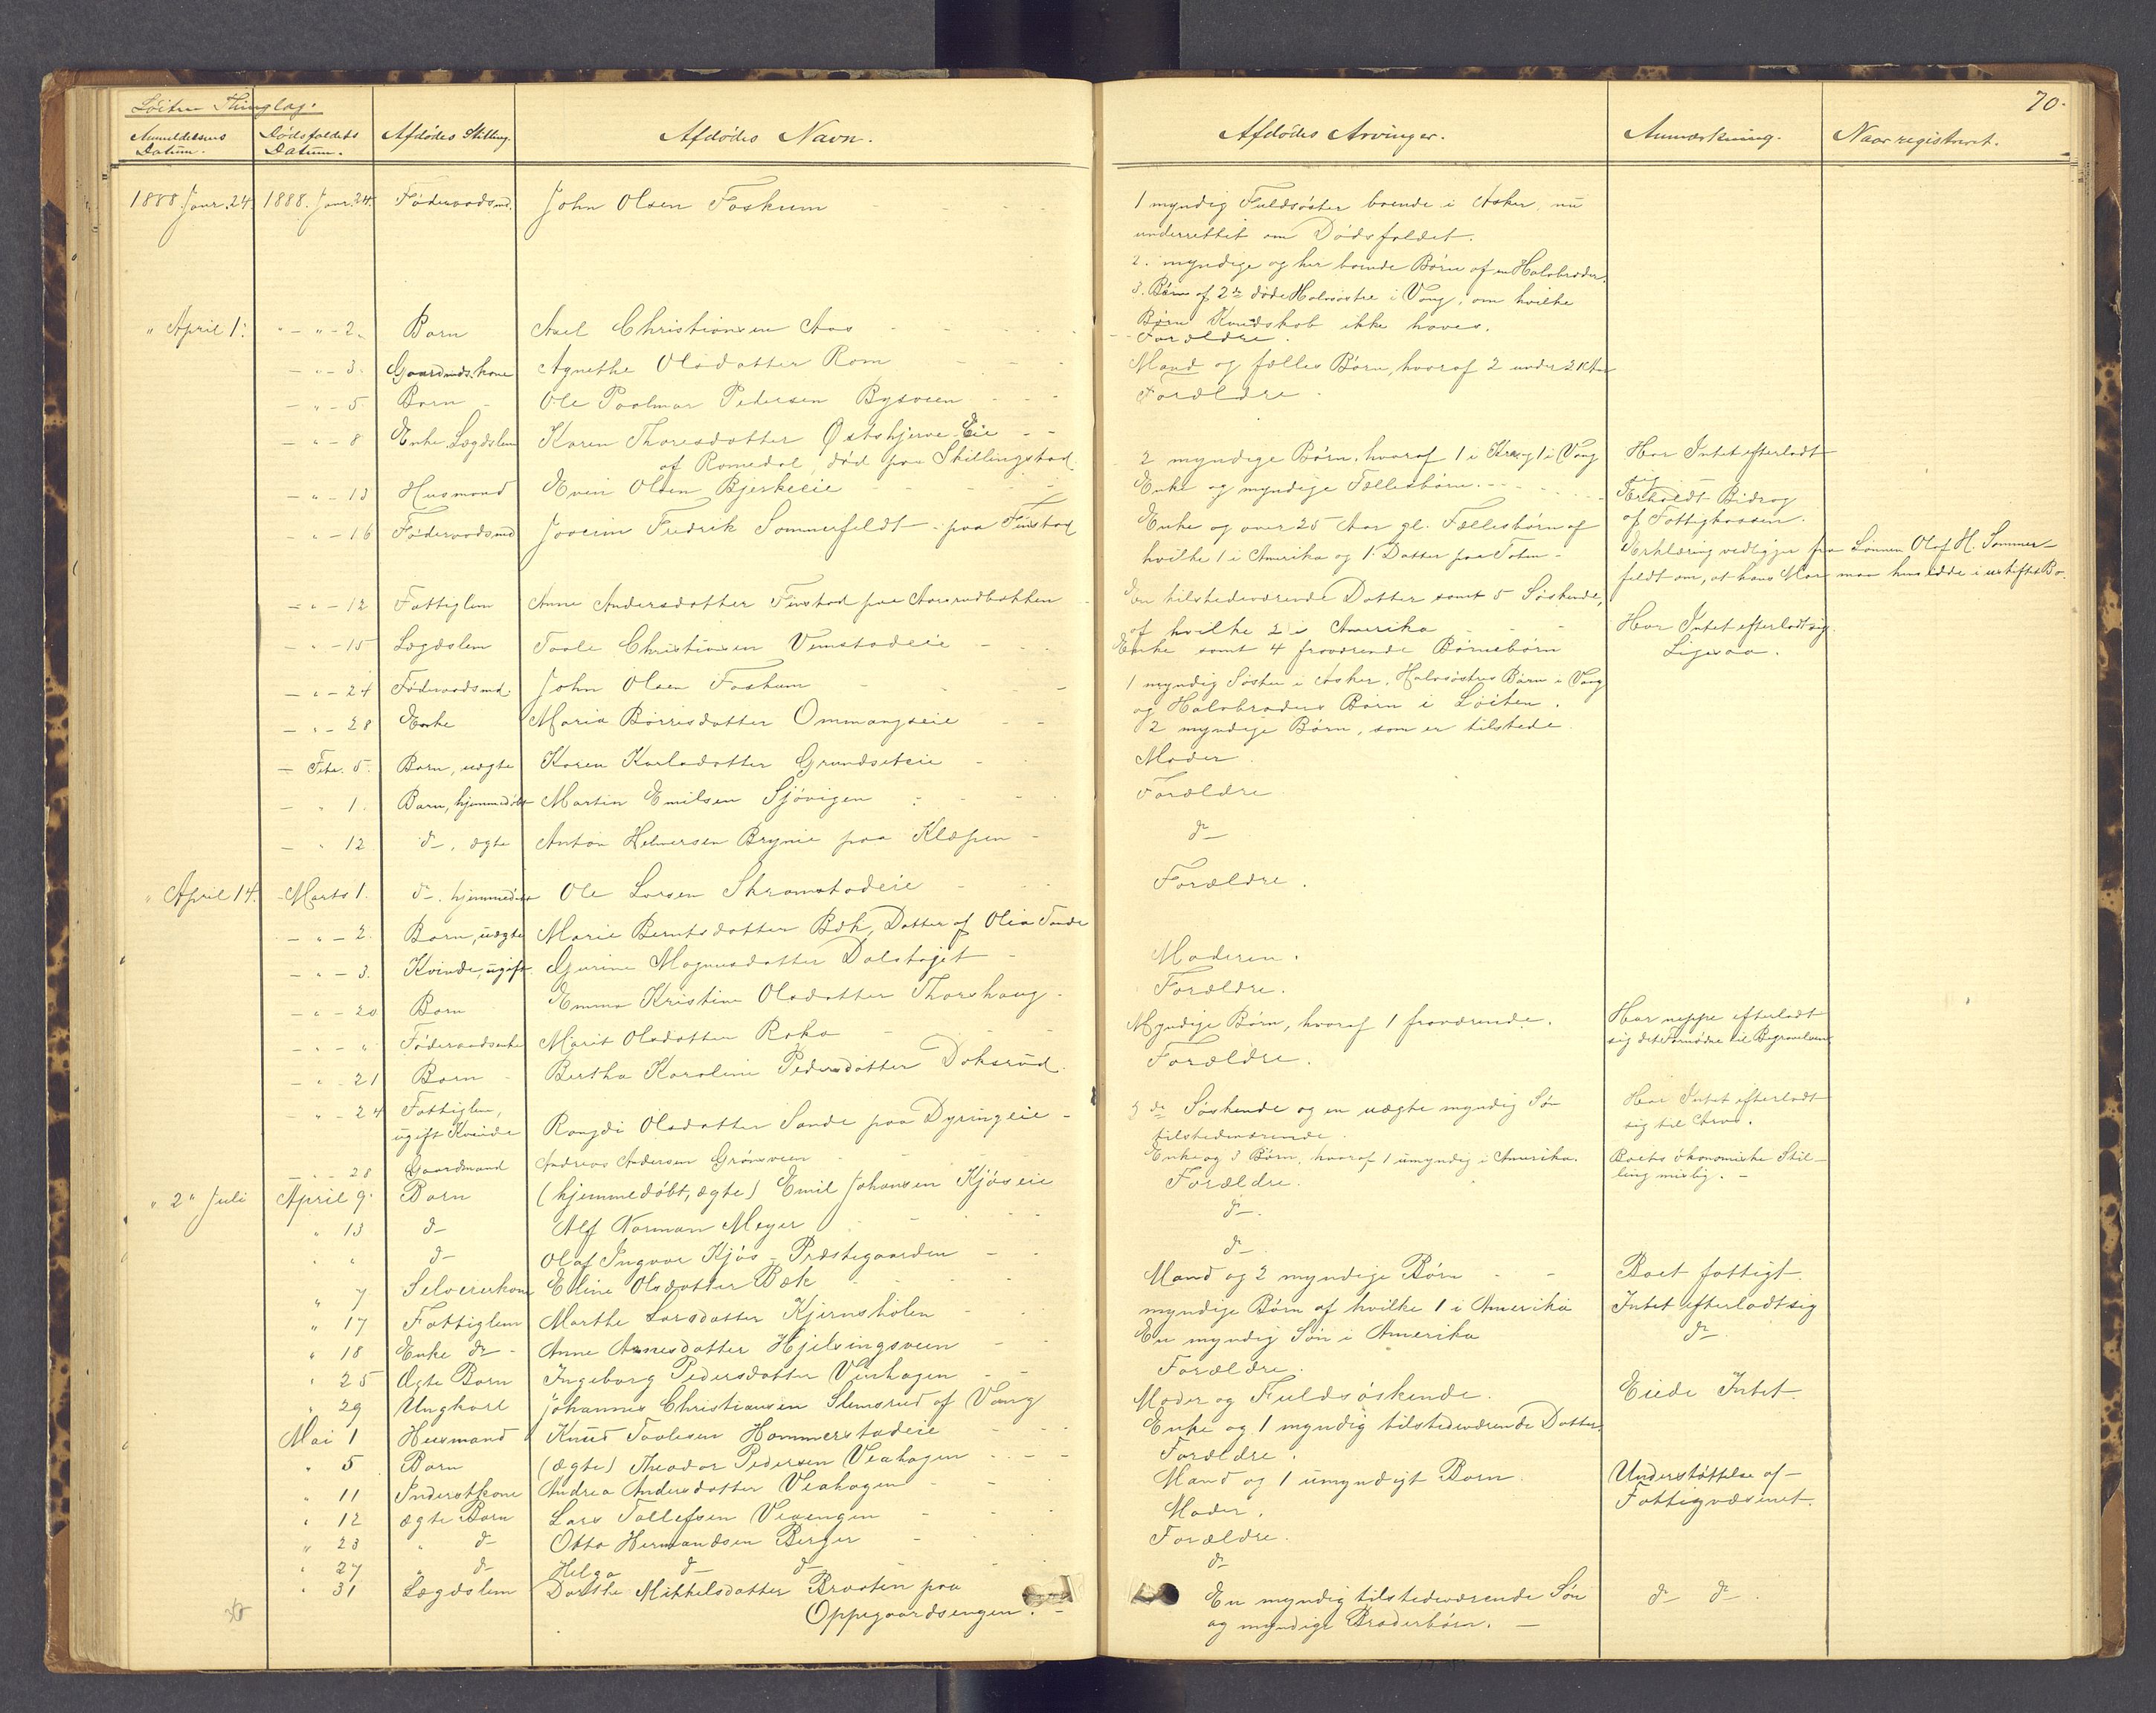 70.
Løiten Thinglag.
Anmeldelsens Datum. Dødsfaldets Datum. Afdødes Stilling. Afdødes Navn. Afdødes Arvinger. Anmærkning. Naar registreret.
1888 Janr. 24. 1888. Janr. 24. Føderaadsmd. John Olsen Foskum 1 myndig Fuldsøster boende i Asker, nu
underrettet om Dødsfaldet.
2. myndige og her boende Børn af en Halvbroder.
3. Børn af 2de døde Halvsøstre i Vang, om hvilke
Børn Kundskab ikke haves.
" April 1. " - " - 2. Barn Axel Christiansen Aas Forældre.
- " - 3. Gaardmds.kone Agnethe Olsdatter Rom Mand og fælles Børn, hvoraf 2 under 21 Aar
- " - 5. Barn Ole Paalmar Pedersen Bysveen Forældre.
- " - 8 Enke, Lægdslem Karen Thoresdatter Østskjerve Eie
af Romedal, død paa Skillingstad. 2 myndige Børn, hvoraf 1 i Kra. og 1 i Vang Har Intet efterladt sig
- " - 13 Husmand Even Olsen Bjerkeeie Enke og myndige Fællesbørn. Erholdt Bidrag
af Fattigkassen.
- " - 16 Føderaadsmd Joveim Fredrik Sommerfeldt paa Finstad Enke og over 25 Aar gl. Fællesbørn af
hvilke 1 i Amerika og 1 Datter paa Toten - Erklæring vedligger fra Sønnen Olaf H. Sommer-
feldt om, at hans Mor maa hensidde i uskiftet Bo.
- " - 12 Fattiglem Anne Andersdatter Finstad paa Aasrudbakken En tilstedeværende Datter samt 5 Søskende,
af hvilke 2 i Amerika Har Intet efterladt sig.
- " - 15 Lægdslem Taale Christiansen Vemstadeie Enke samt 4 fraværende Børnebørn Ligesaa.
- " - 24 Føderaadsmd. John Olsen Foskum 1 myndig Søster i Asker, Halvsøstres Børn i Vang
og Halvbroders Børn i Løiten.
- " - 28 Enke Maria Børresdatter Ommangseie 2 myndige Børn, som er tilstede.
- Febr. 5. Barn, uægte Karen Karlsdatter Grundseteie Moder.
- " 1. Barn, hjemmedøbt Martin Emilsen Sjøvigen Forældre
- " 12 do, ægte Anton Helmersen Brynie paa Klæpen do
" April 14. - Marts 1. do, hjemmedøbt Ole Larsen Skramstadeie Forældre.
- " - 2. Barn, uægte Marie Berntsdatter Bæk, Datter af Olia Sande Moderen.
- " - 3. Kvinde, ugift. Gurine Magnusdatter Dalshøjet Forældre.
- " - 20 Barn Emma Kristine Olsdatter Thorshaug.
- " - " Føderaadsenke Marit Olsdatter Roko Myndige Børn, hvoraf 1 fraværende. Har neppe efterladt
sig det Fornødne til Begravelsen.
- " - 21 Barn Bertha Karoline Pedersdatter Doksrud. Forældre.
- " - 24 Fattiglem,
ugift Kvinde Rangdi Olsdatter Sande paa Dyringeie 3de Søskende og en uægte myndig Søn
tilstedeværende. Har Intet efterladt
sig til Arv.
- " - 28 Gaardmand Andreas Andersen Grønsveen Enke og 3 Børn, hvoraf 1 umyndig i Amerika. Boets økonomiske Stil-
ling mislig. -
" 2 " Juli April 9. Barn (hjemmedøbt, ægte) Emil Johansen Kjøseie Forældre.
" 13 do Alf Norman Meyer do.
" " do Olaf Ingvar Kjøs - Præstegaarden do.
" 7 Selveierkone Eline Olsdatter Bæk Mand og 2 myndige Børn Boet fattigt.
" 17 Fattiglem Marthe Larsdatter Kjernshølen myndige Børn af hvilke 1 i Amerika Intet efterladt sig
" 18 Enke do - Anne Arnesdatter Hjelsingsveen En myndig Søn i Amerika do
" 25 Ægte Barn Ingeborg Pedersdatter Veahagen Forældre.
" 29 Ungkarl Johannes Christiansen Slemsrud af Vang Moder og Fuldsøskende. Eiede Intet
Mai 1 Husmand Knud Taalesen Hommerstadeie Enke og 1 myndig tilstedeværende Datter.
" 5 Barn (ægte) Theodor Pedersen Veahagen Forældre.
" 11 Inderstkone Andrea Andersdatter Veahagen Mand og 1 umyndigt Barn. Understøttelse af
Fattigvæsenet.
" 12 ægte Barn Lars Tollefsen Veaengen Moder.
" 23 " do Otto Hermandsen Berger Forældre.
" 27 " do Helga do do do
" 31 Lægdslem Dorthe Mikkelsdatter Braaten paa
Oppegaardsengen. En myndig tilstedeværende Søn
og myndige Broderbørn. do do